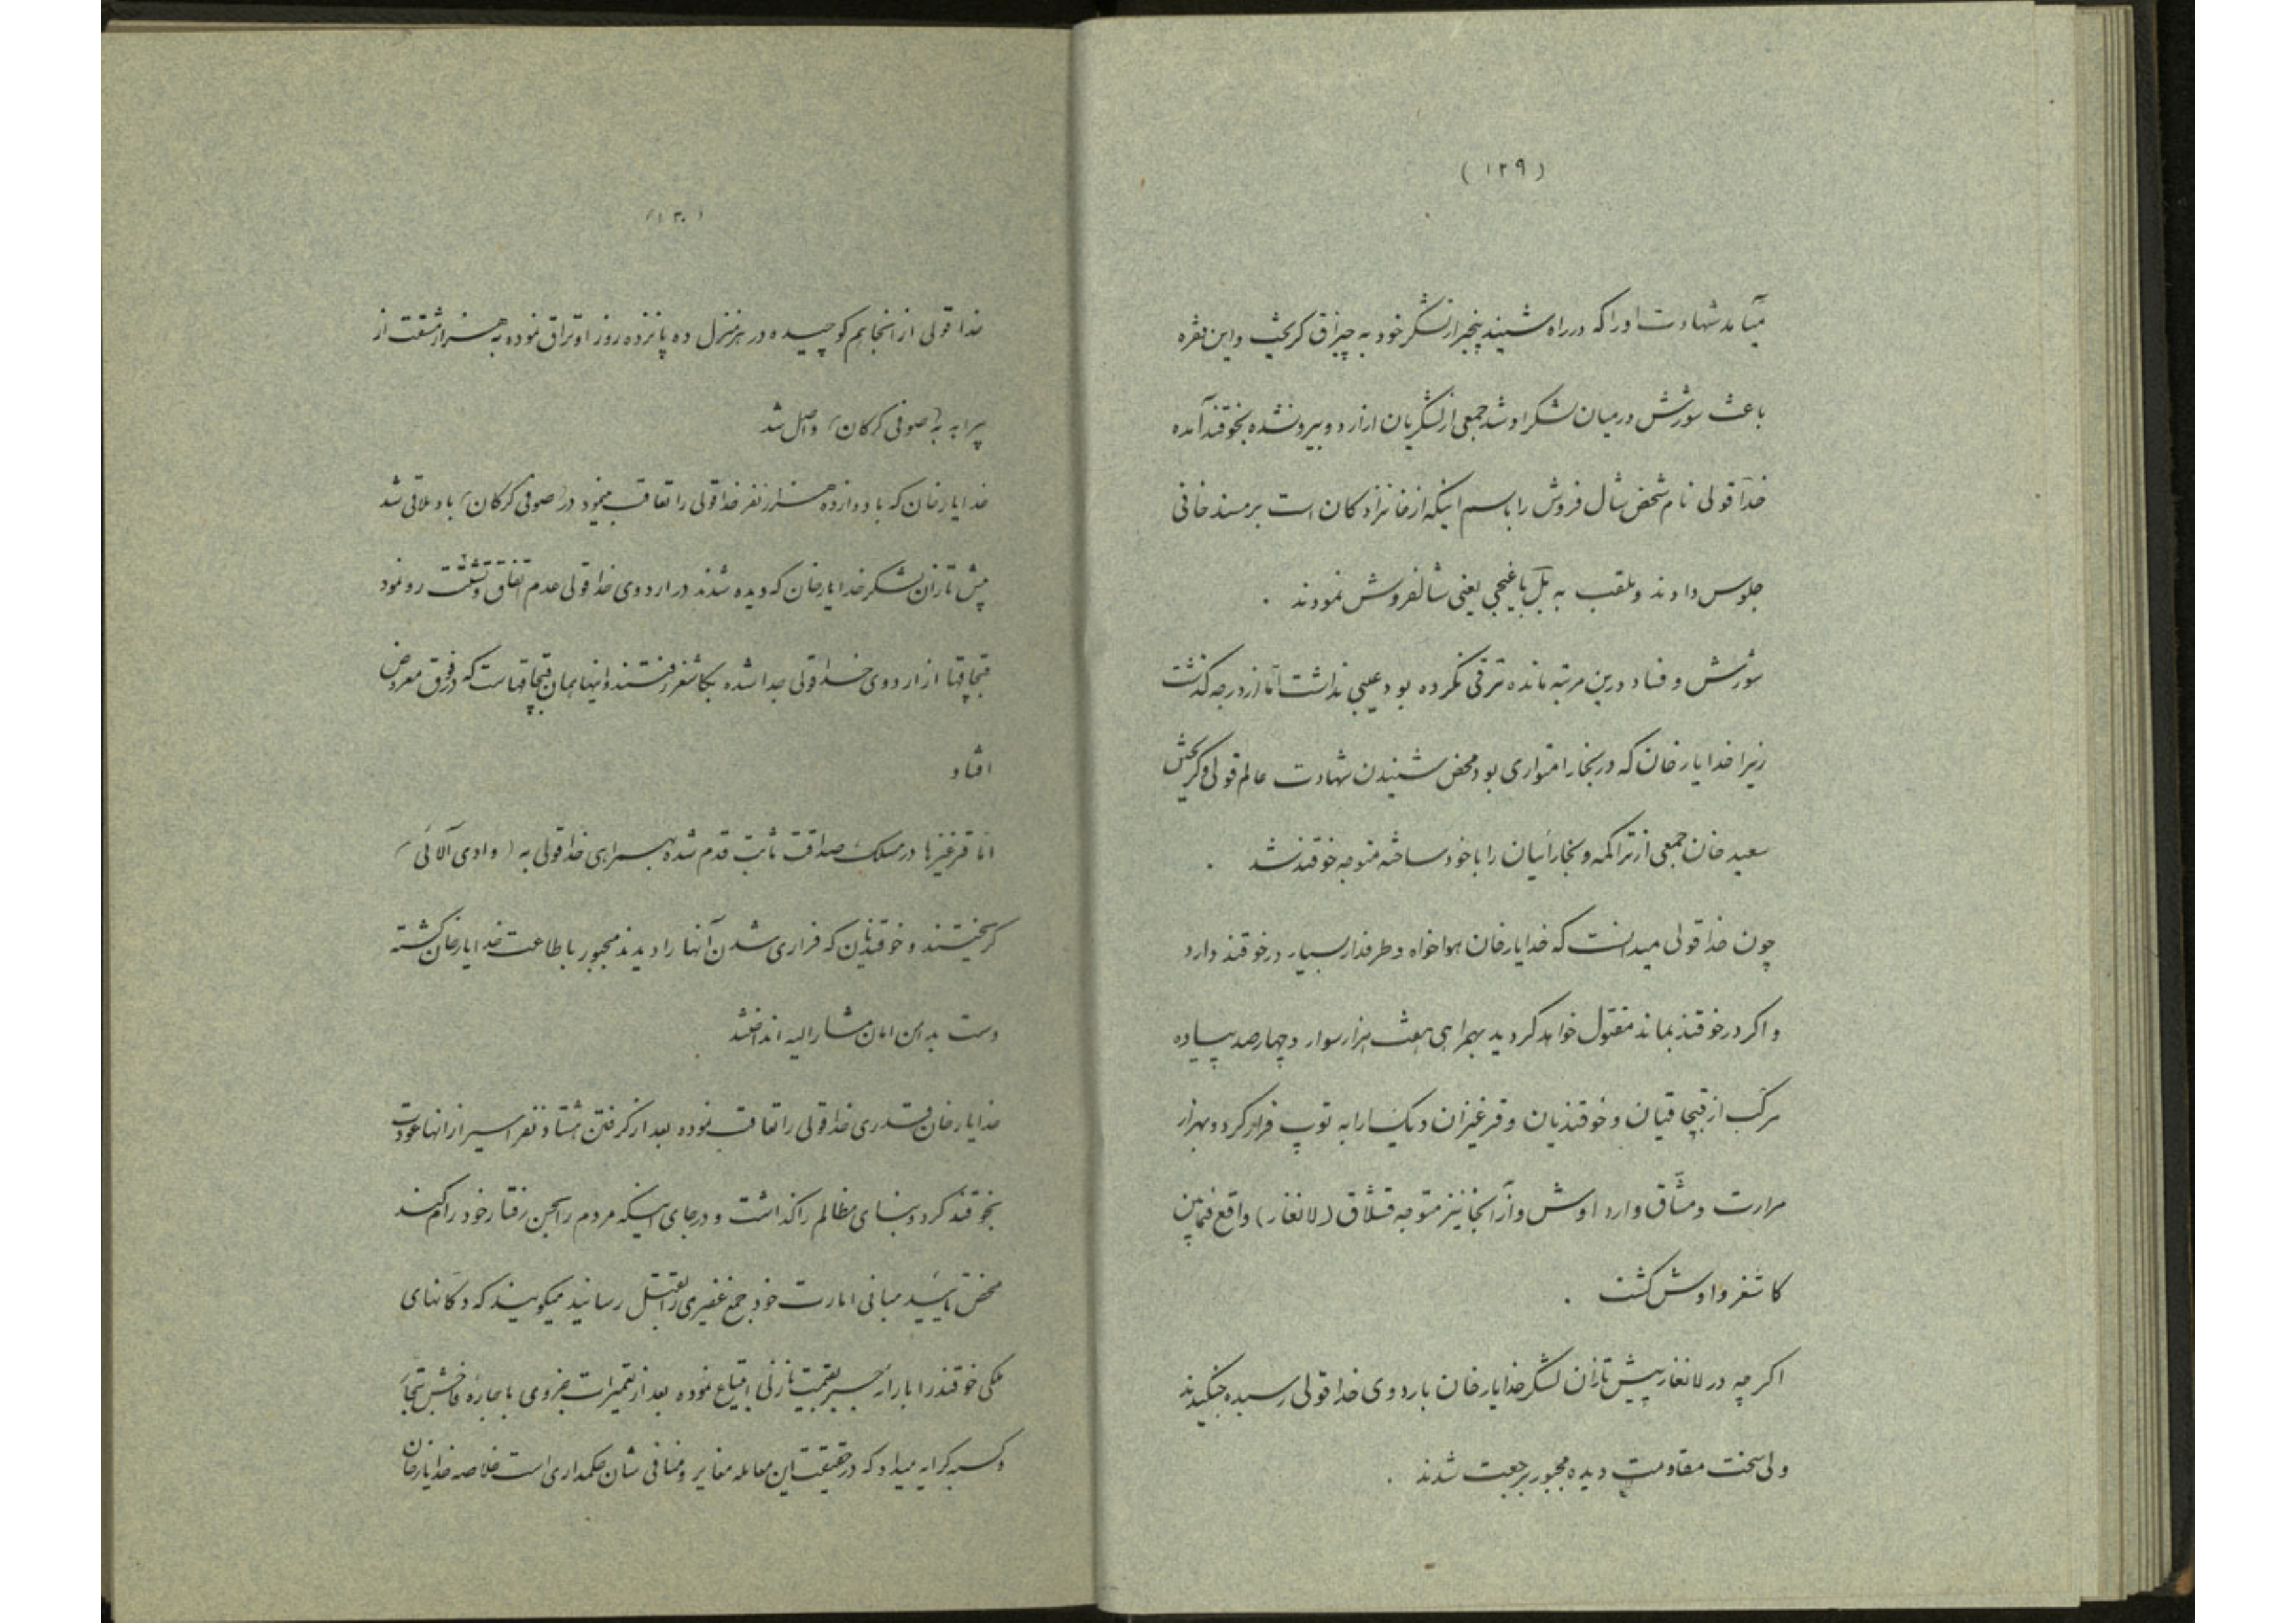 (۱۲۹)
میآمد شهادت او را که در راه شنید پنجهزار لشکر خود به چیزاق کریخت و این فقره
باعث شورش در میان لشکر او شد جمعی از لشکریان از اردو بیرونشده بخوقند آمده
خداقولی نام شخص شال فروش را باسم اینکه از خانزادکان است بر مسند خانی
جلوس دادند و ملقب به بل باغیجی یعنی شالفروش نمودند .
شورش و فساد درین مرتبه مانده ترقی نکرده بود عیبی نداشت اما از درجه کذشت
زیرا خدایارخان که در بخارا متواری بود محض شنیدن شهادت عالم قولی و کریختن
سعید خان جمعی از تراکمه و بخارائیان را با خود ساخته متوجه خوقند شد .
چون خداقولی میدانست که خدایارخان هواخواه و طرفدار بسیار در خوقند دارد
و اکر در خوقند بماند مقتول خواهد کردید بهمراهی هشت هزار سوار و چهارصد پیاده
مرکب از قپچاقیان و خوقندیان و قرغیزان و یکپاره توپ فرار کرد و بهزار
مرارت و مشاق وارد اوش و از آنجا نیز متوجه قشلاق (لانغار) واقع فیمابین
کاشغر و اوش کشت .
اکرچه در لانغار پیش تازان لشکر خدایارخان باردوی خداقولی رسیده جنکیدند
ولی سخت مقاومت دیده مجبور برجعت شدند .
(۱۳۰)
خداقولی از آنجا هم کوچیده در هر منزل ده پانزده روز اوتراق نموده به هزار مشقت از
بیراهه به (صوفی کرکان) واصل شد
خدایارخان که با دوازده هزار نفر خداقولی را تعاقب مینمود در (صوفی کرکان) باو ملاقی شد
پیش تازان لشکر خدایارخان که دیده شدند در اردوی خداقولی عدم اتفاق و تشتت رو نمود
قپچاقها از اردوی خداقولی جدا شده بکاشغر رفتند و اینها همان قپچاقهاست که در فوق معروض
افتاد
اما قرغیزها در مسلک صداقت ثابت قدم شده بهمراهی خداقولی به (وادی آلائی)
کریختند و خوقندیان که فراری شدن آنها را دیدند مجبور باطاعت خدایارخان کشته
دست بدامن امان مشارالیه انداختند
خدایارخان قدری خداقولی را تعاقب نموده بعد از کرفتن هشتاد نفر اسیر از آنها عودت
بخوقند کرد و بنای مظالم را کذاشت و در جای اینکه مردم را بحسن رفتار خود رام کند
محض تایید مبانی امارت خود جمع غفیری را بقتل رسانید میکویند که دکانهای
ملکی خوقند را باراده جبر بقیمت نازلی ابتیاع نموده بعد از تعمیرات جزوی باجاره فاحش بتجار
و کسبه کرایه میداد که در حقیقت این معامله مغایر و منافی شان حکمداری است خلاصه خدایارخان